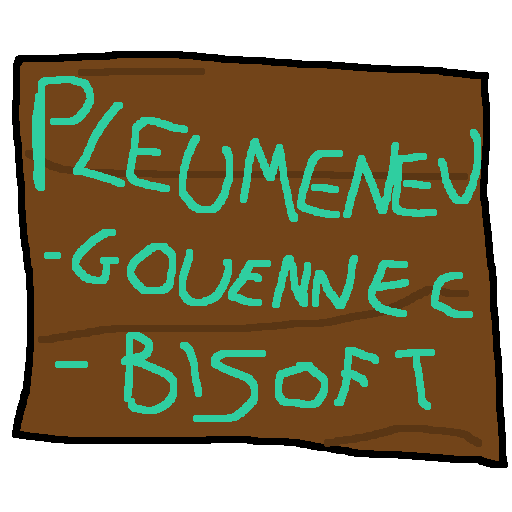 PLEUMENEU
-GOUENNEC
- BISOFT